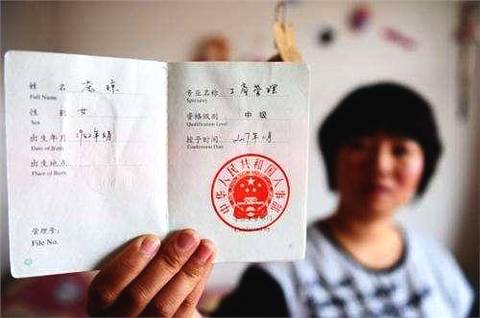 姓 名
Full Name
性 别 女
Sex
出生年月
Date of Birth
出生地点
Place of Birth
管理号:
File No.
专业名称 工商管理
Speciality
资格级别 中级
Qualification Level
授予时间
Conferment Date
中华人民共和国人事部